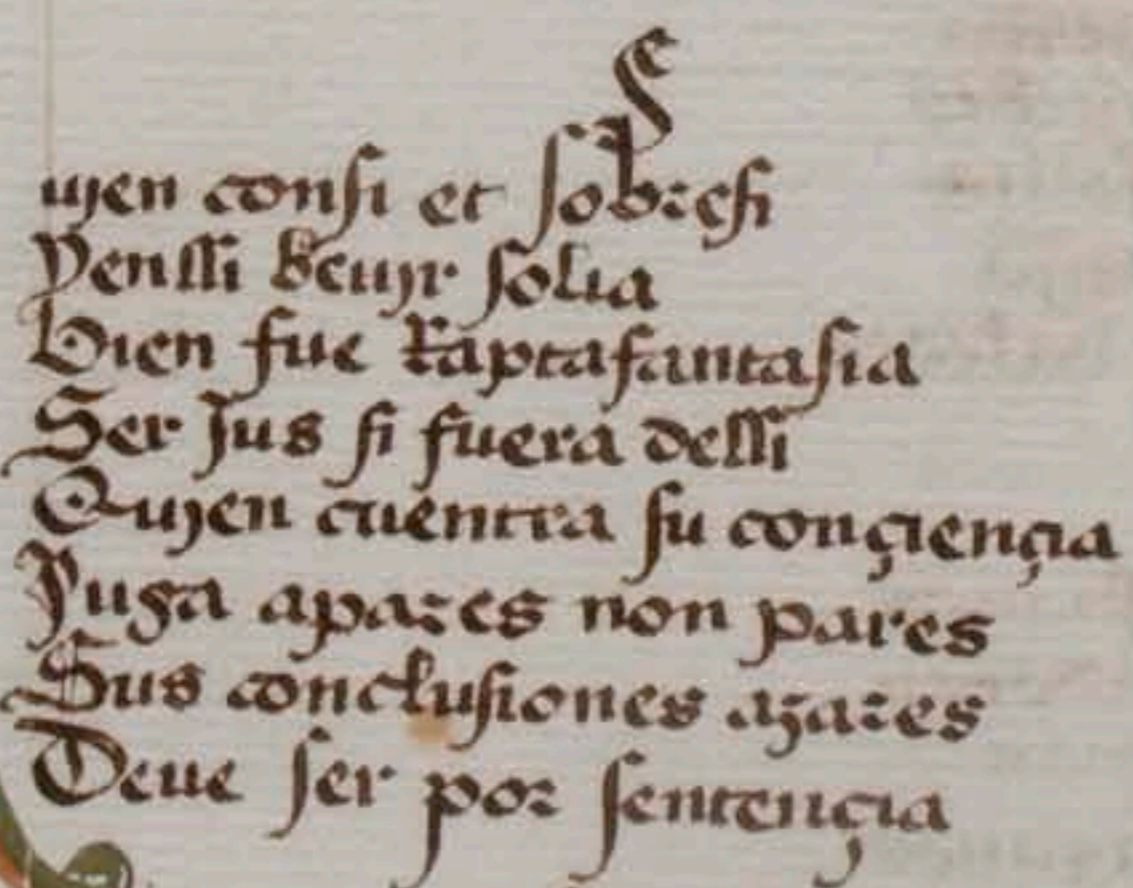 ujen consi et sobresi
Yenssi beujr solia
Bien fue Raptafantasia
Ser Jus si fuera delli
Qujen cuentra su conçiençia
Juga apares non pares
Sus conclusiones azares
Deue ser por sentençia